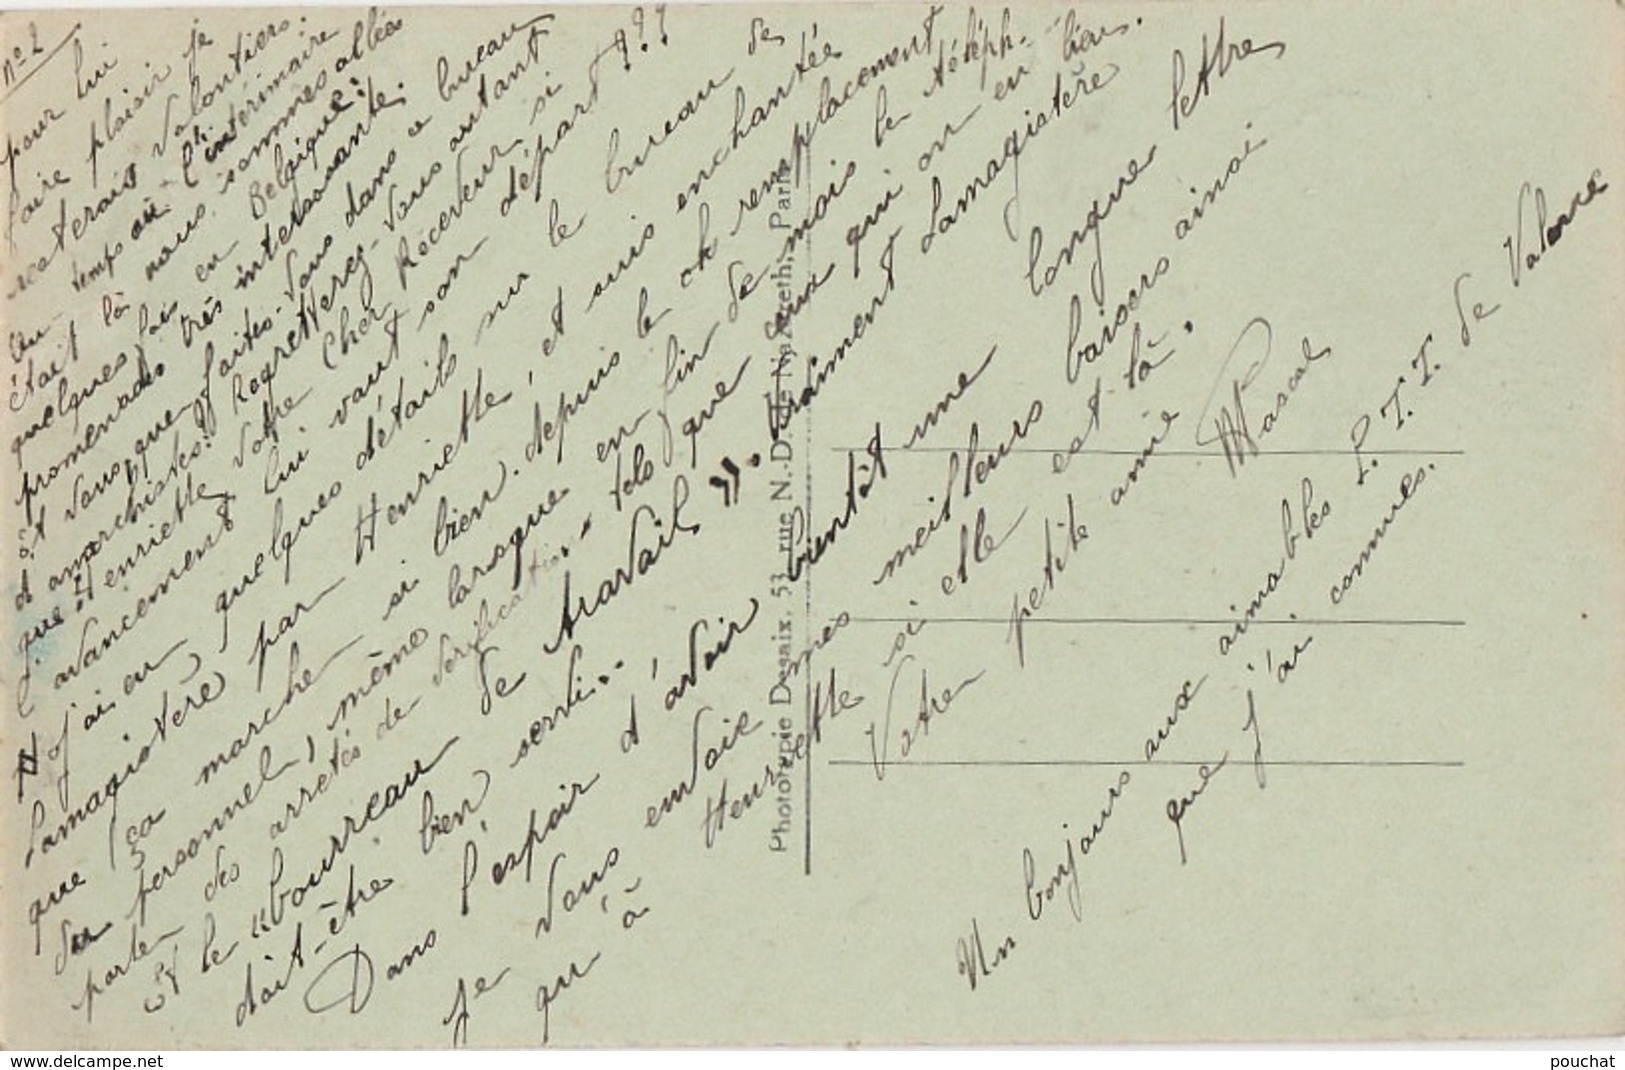 N° 2
pour lui
faire plaisir je
resterais volontiers.
temps où l'intérimaire
était là nous sommes allées
quelques fois en Belgique:
promenades très intéressante.
Et vous, que faites-vous dans ce bureau
d'anarchistes? Regretterez-vous autant
que Henriette votre cher Receveur si
l'avancement lui vaut son départ???
J'ai eu quelques détails sur le bureau de
Lamagistère par Henriette, et suis enchantée
que ça marche si bien. depuis le ch remplacement
du personnel, même lorsque en fin de mois le téléph.
parle des arrêtés de vérification. tels que ceux qui on en lieu.
et le "bourreau de travail". vraiment Lamagistère
doit-être bien servi..
Dans l'espoir d'avoir bientôt une longue lettre
Je vous envoie mes meilleurs baisers ainsi
qu'à Henriette si elle est là.
Votre petite amie
Pascal
Un bonjour aux aimables P.T.T. de Valence
que j'ai connues.
Phototypie Desaix, 53, rue N.-D. de Nazareth, Paris
www.delcampe.net
pouchat